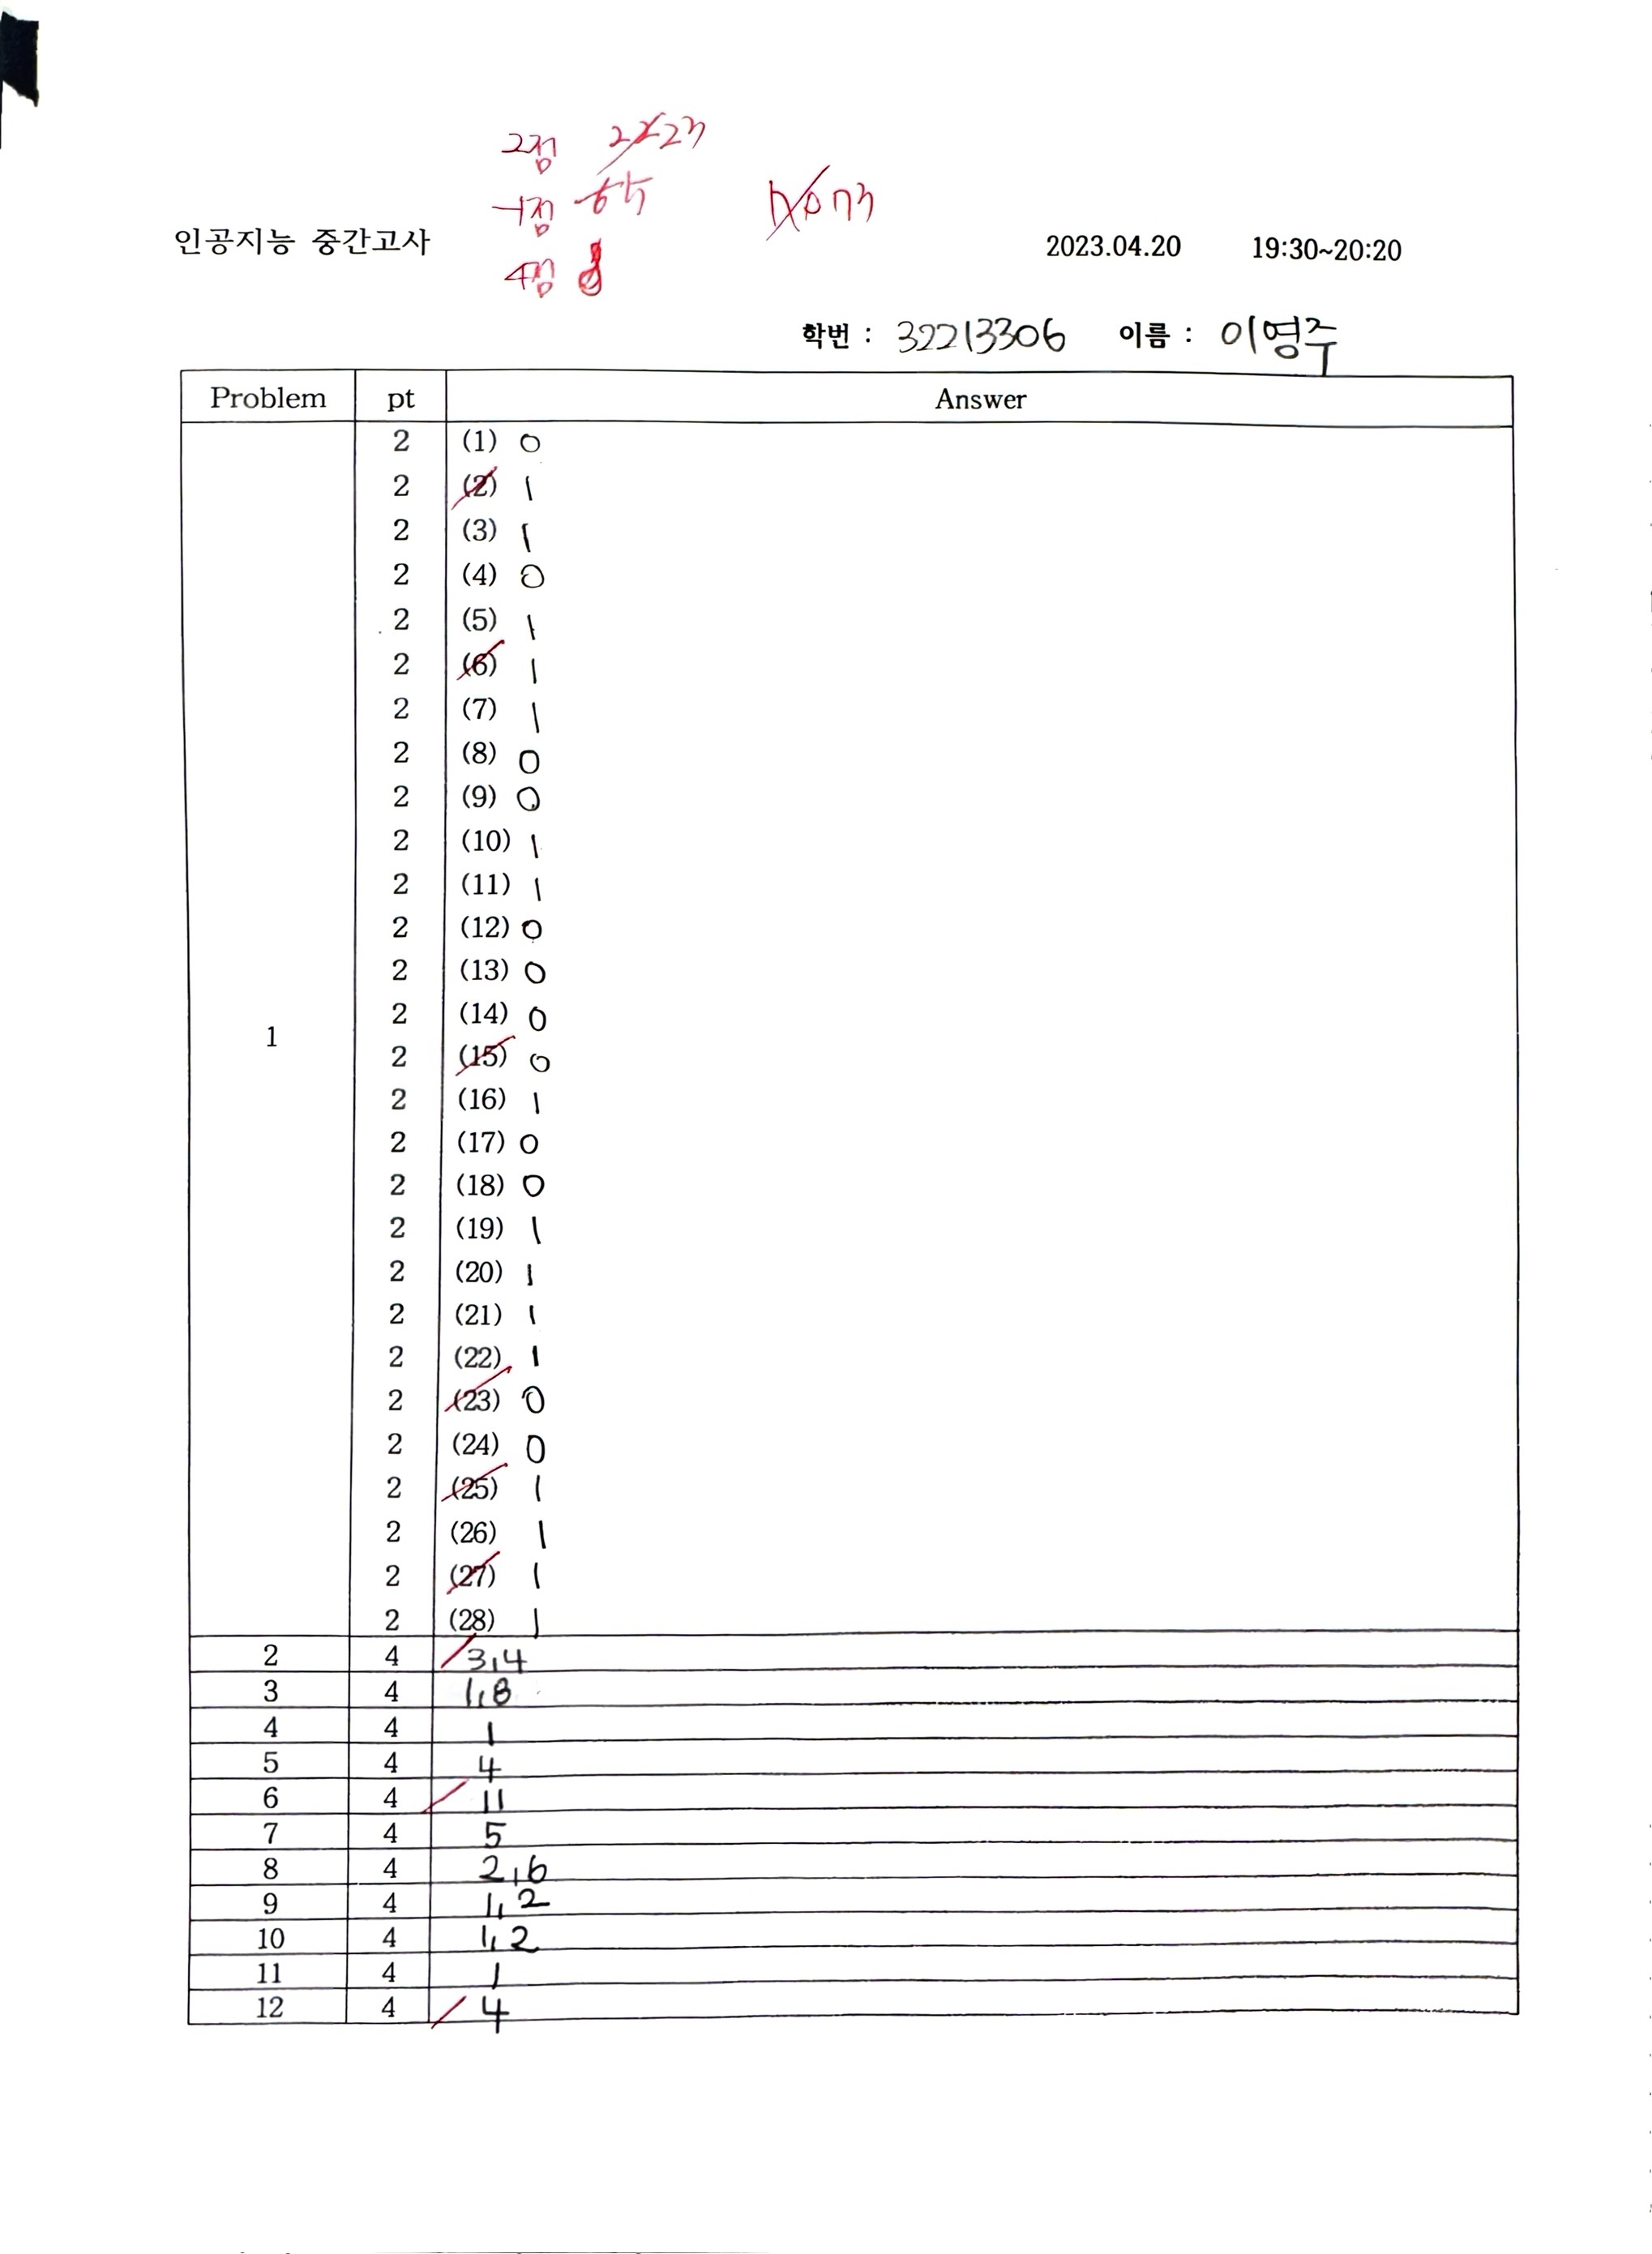 2점 22 23
-1점 6 5
70 73
인공지능 중간고사 2023.04.20 19:30~20:20
4점 8
학번 : 32213306 이름 : 이영주
Problem pt Answer
2 (1) 0
2 (2) 1
2 (3) 1
2 (4) 0
2 (5) 1
2 (6) 1
2 (7) 1
2 (8) 0
2 (9) 0
2 (10) 1
2 (11) 1
2 (12) 0
2 (13) 0
2 (14) 0
1 2 (15) 0
2 (16) 1
2 (17) 0
2 (18) 0
2 (19) 1
2 (20) 1
2 (21) 1
2 (22) 1
2 (23) 0
2 (24) 0
2 (25) 1
2 (26) 1
2 (27) 1
2 (28) 1
2 4 3,4
3 4 1,8
4 4 1
5 4 4
6 4 11
7 4 5
8 4 2,6
9 4 1,2
10 4 1,2
11 4 1
12 4 4